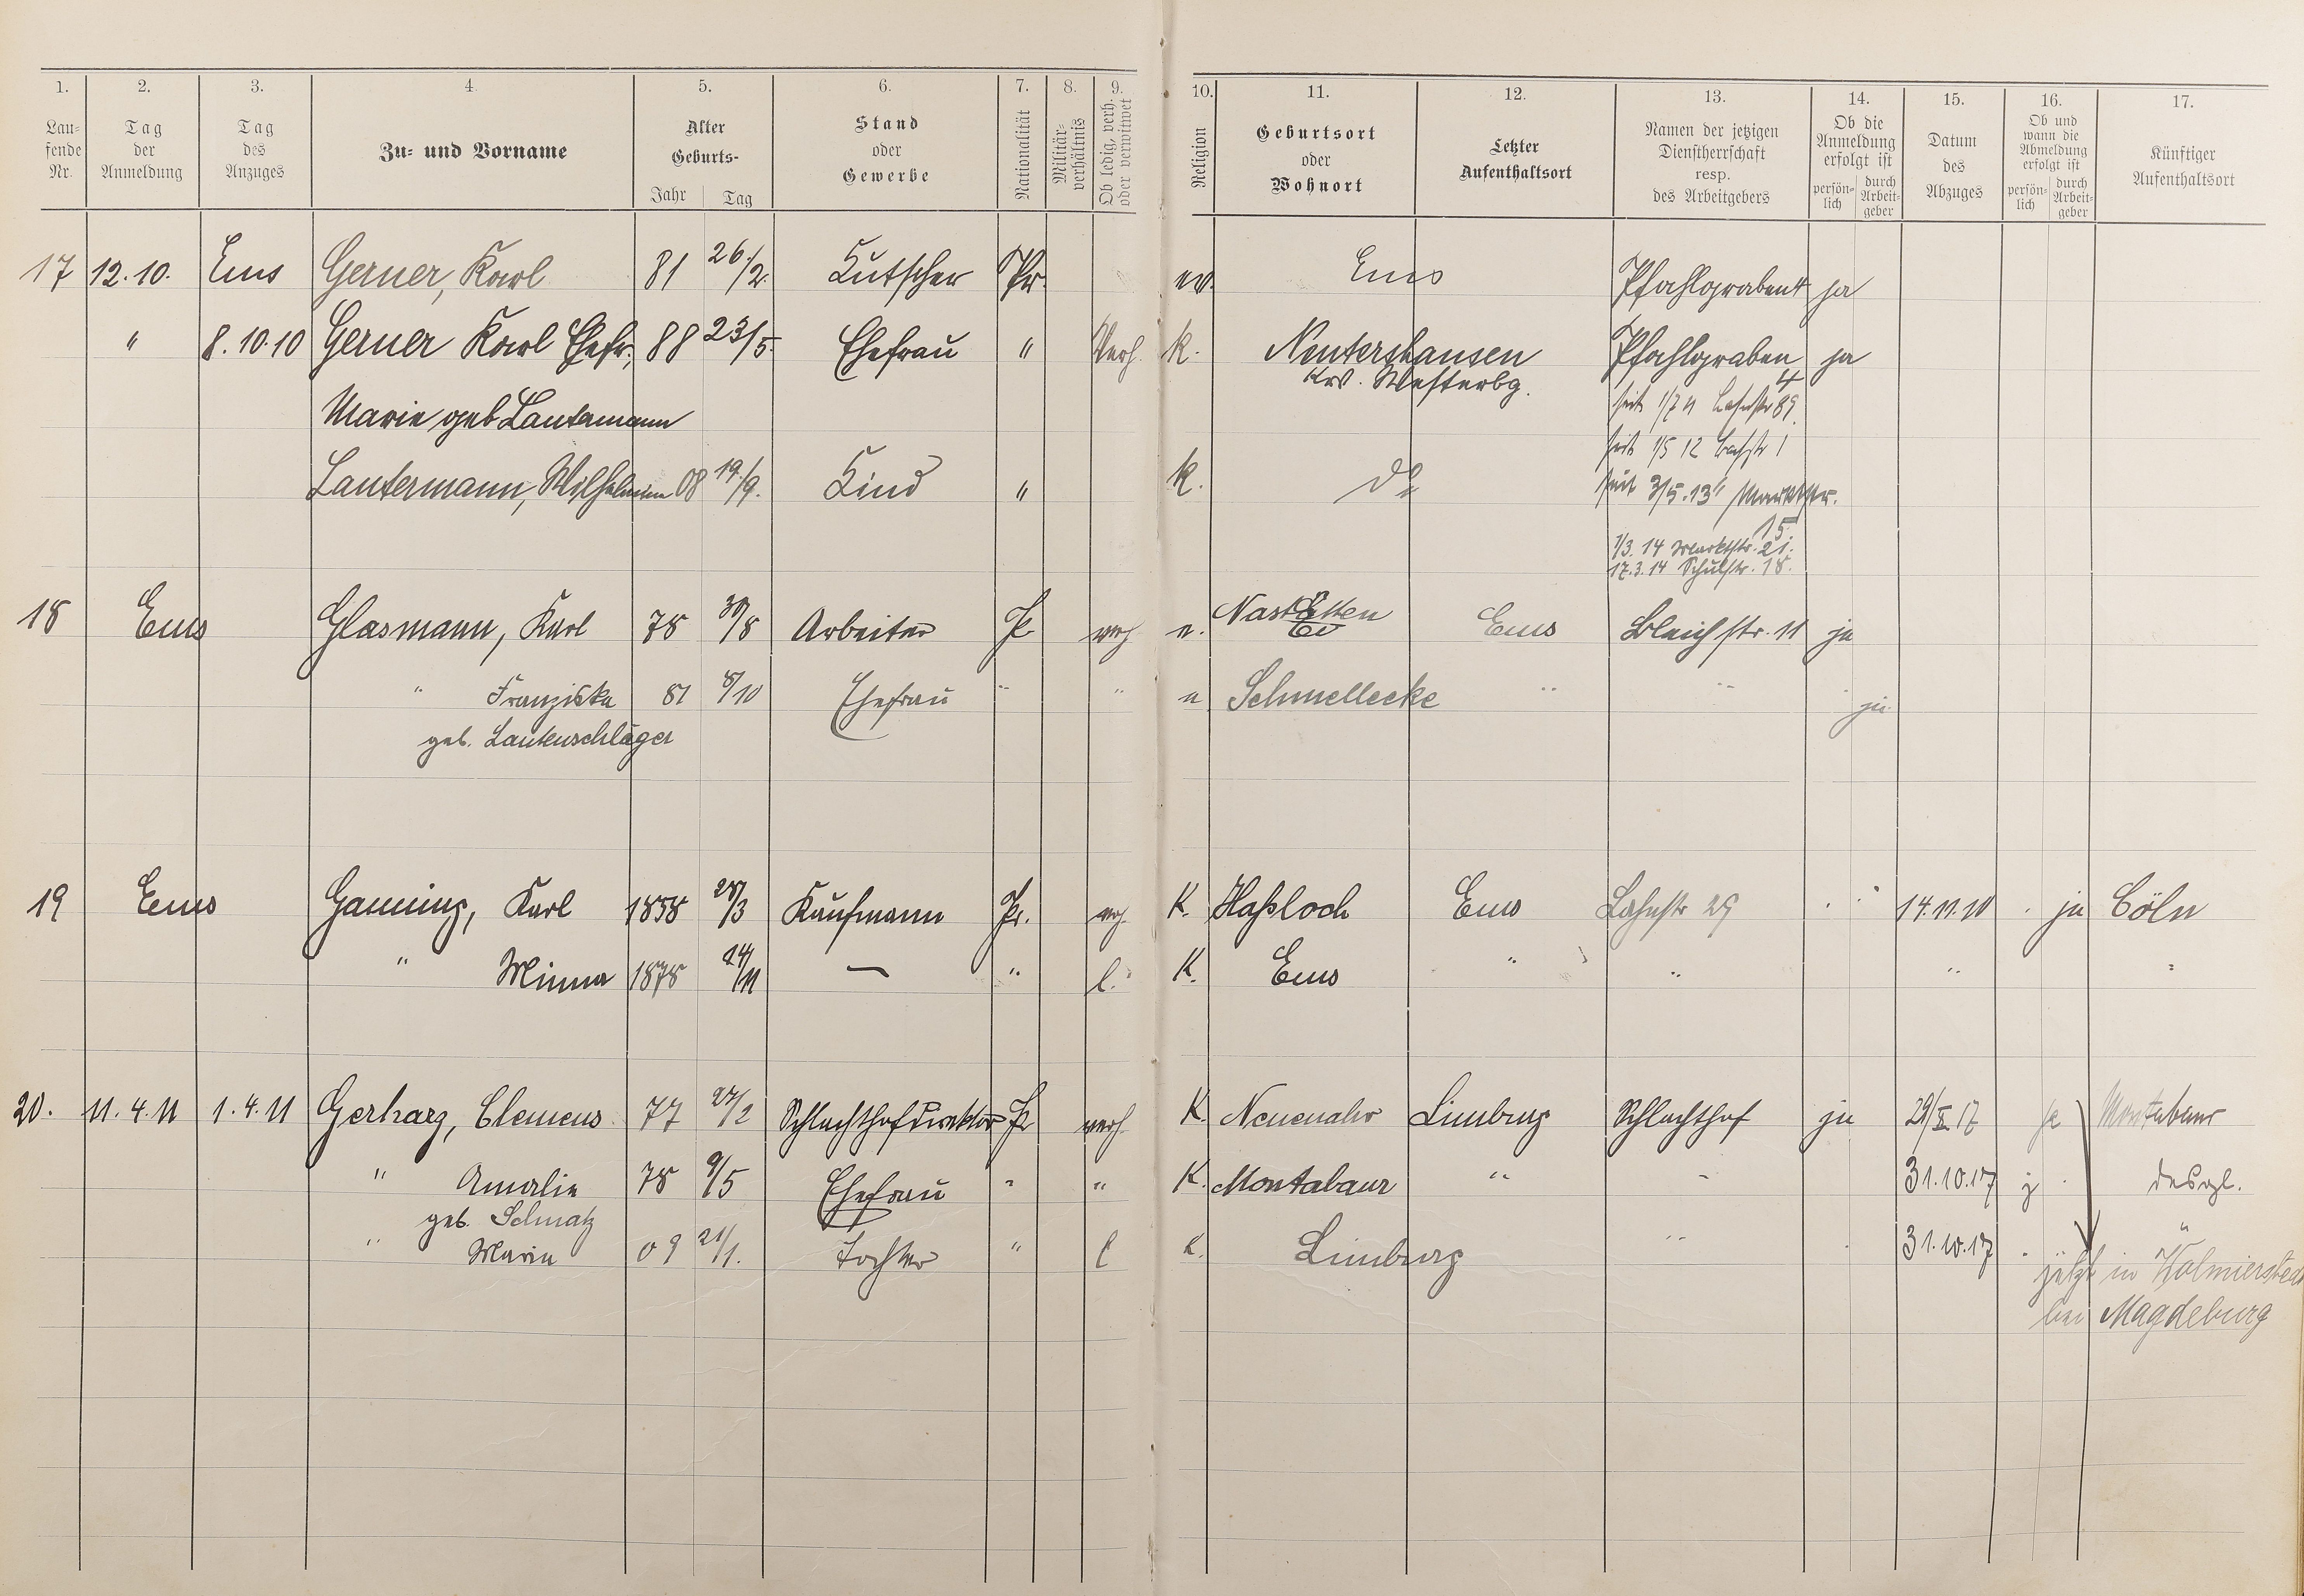 1. 2. 3. 4. 5. 6. 7. 8. 9. 10. 11. 12. 13. 14. 15. 16. 17.
Lau-
fende
Nr.
Tag
der
Anmeldung
Tag
des
Anzuges
Zu- und Vorname
Alter
Geburts-
Jahr Tag
Stand
oder
Gewerbe
Nationalität
Militär-
verhältnis
Ob ledig, verh.
oder verwitwet
Religion
Geburtsort
oder
Wohnort
Letzter
Aufenthaltsort
Namen der jetzigen
Dienstherrschaft
resp.
des Arbeitgebers
Ob die
Anmeldung
erfolgt ist
persön-
lich
durch
Arbeit-
geber
Datum
des
Abzuges
Ob und
wann die
Abmeldung
erfolgt ist
persön-
lich
durch
Arbeit-
geber
Künftiger
Aufenthaltsort
17 12.10. Ems Gerner, Karl 81 26./2. Kutscher Pr. ev. Ems Pfahlgraben 4 ja
" 8.10.10 Gerner Karl Ehefr. 88 23/5. Ehefrau " Verh. k. Nentershausen Pfahlgraben 4 ja
Krs. Westerbg.
Marie geb Lautermann seit 1/7 11 Lahnstr 89
seit 1/5 12 Bachstr 1
Lautermann, Wilhelmine 08 19./9. Kind " k. do seit 3/5.13 Marktstr. 15.
1/3. 14 Marktstr. 21.
17.3.14 Schulstr. 18.
18 Ems Glasmann, Karl 78 30/8 Arbeiter Pr verh e. Nastätten Ems Bleichstr. 11 ja
" Franziska 81 8/10 Ehefrau " " e Schmellecke " " ja
geb. Lautenschläger
19 Ems Ganning, Karl 1858 28/3 Kaufmann Pr. verh. K. Haßloch Ems Lahnstr 29 14.11.10 ja Cöln
" Minna 1878 24/11 — " l. K. Ems " " " "
20. 11.4.11 1.4.11 Gerharz, Clemens 77 27/2 Schlachthofdirektor Pr verh. K. Neuenahr Limburg Schlachthof ja 29/X 17 ja Montabaur
" Amalie 78 9/5 Ehefrau " " K. Montabaur " " 31.10.17 j desgl.
geb. Schmatz
" Maria 09 21/1. Tochter " l k. Limburg " 31.10.17 "
jetzt in Wolmierstedt
bei Magdeburg